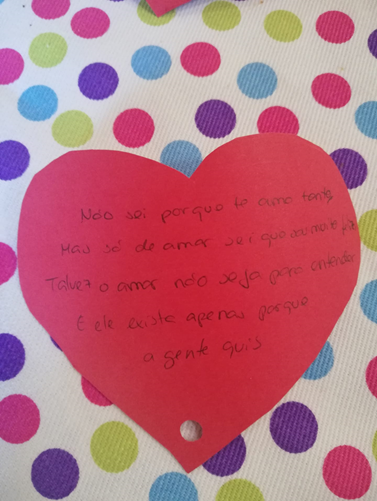 Não sei porque te amo tanto,
Mas só de amar sei que sou muito feliz
Talvez o amor não seja para entender
E ele exista apenas porque
a gente quis